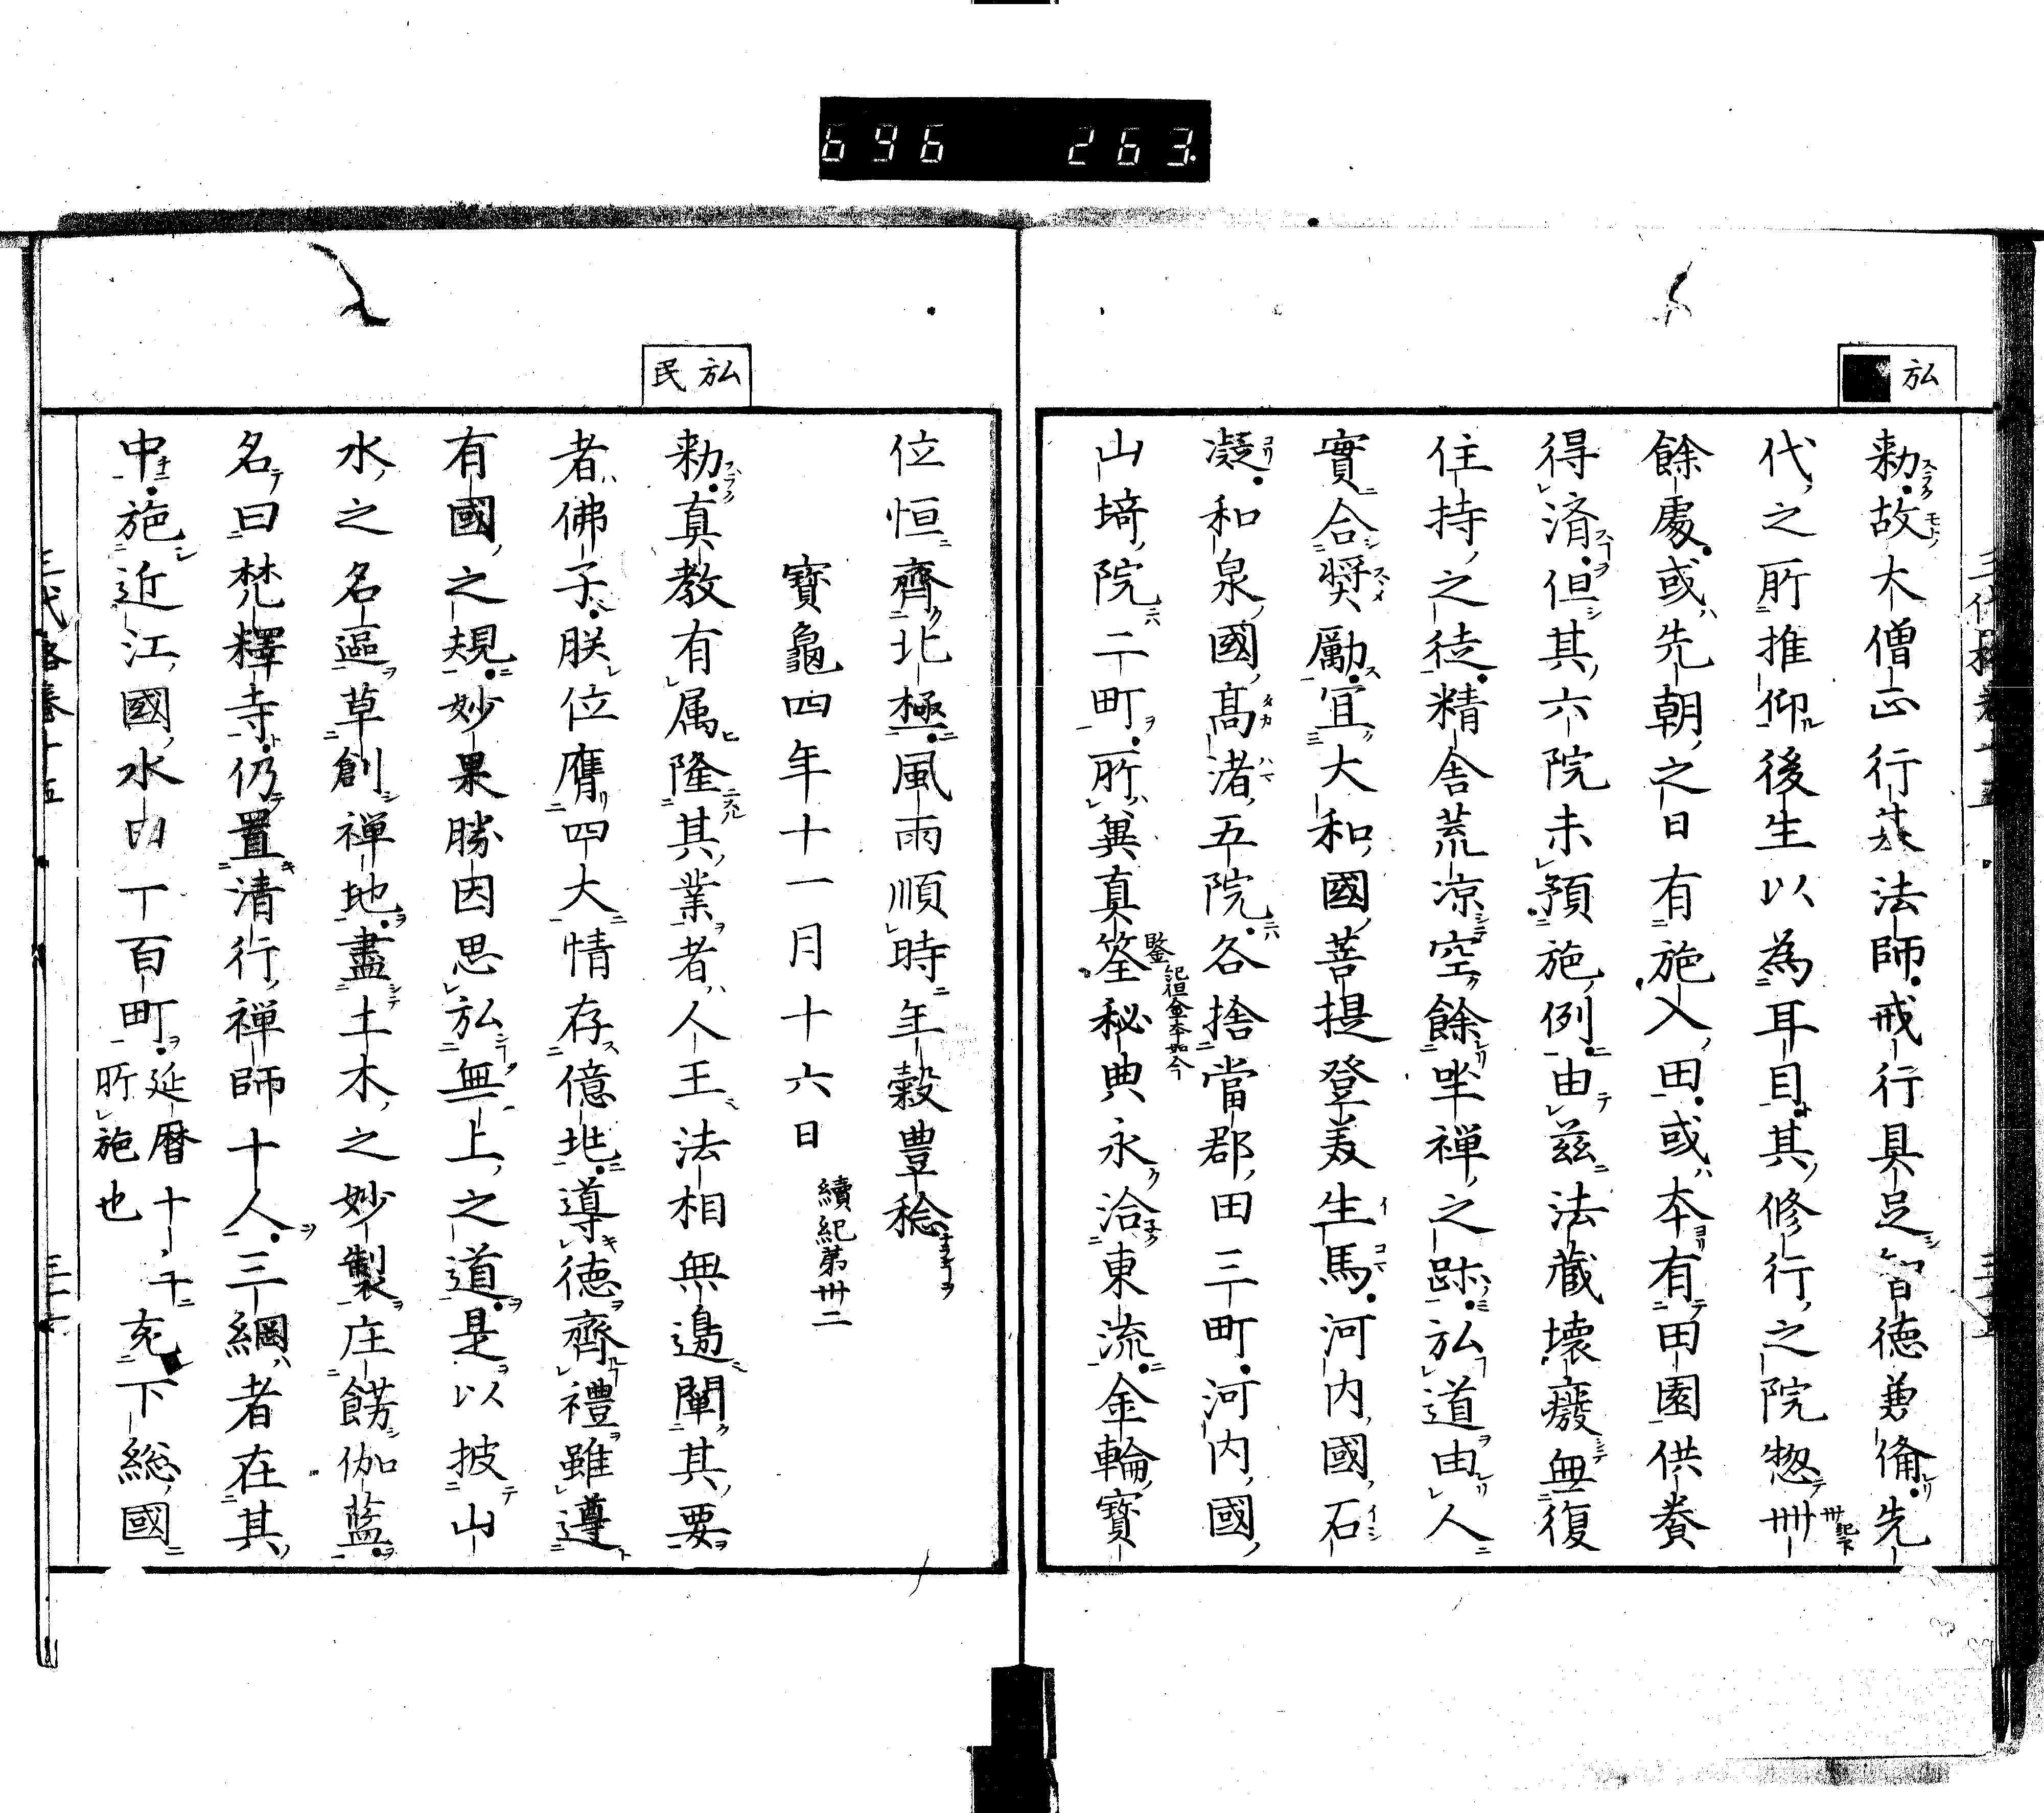 696 263
弘
勅故大僧正行基法師戒行具足智徳兼備先
代之所推仰後生以為耳目其修行之院惣卌
餘處或先朝之日有施入田或本有田園供養
得済但其六院未預施例由茲法蔵壊癈無復
住持之徒精舎荒凉空餘坐禅之跡弘道由人
實合奨勵宜大和國菩提登美生馬河内國石
凝和泉國髙渚五院各捨當郡田三町河内國
山埼院二町所冀真筌秘典永洽東流金輪寳
弘
民
位恒齊北極風雨順時年穀豊稔
寳龜四年十一月十六日
續紀第卅二
勅真教有属隆其業者人王法相無邊闡其要
者佛子朕位膺四大情存億兆導徳齊禮雖遵
有國之規妙果勝因思弘無上之道是以披山
水之名區草創禅地盡土木之妙製庄餝伽藍
名曰梵釋寺仍置清行禅師十人三綱者在其
中施近江國水田一百町
延暦十
所施也
充下総國